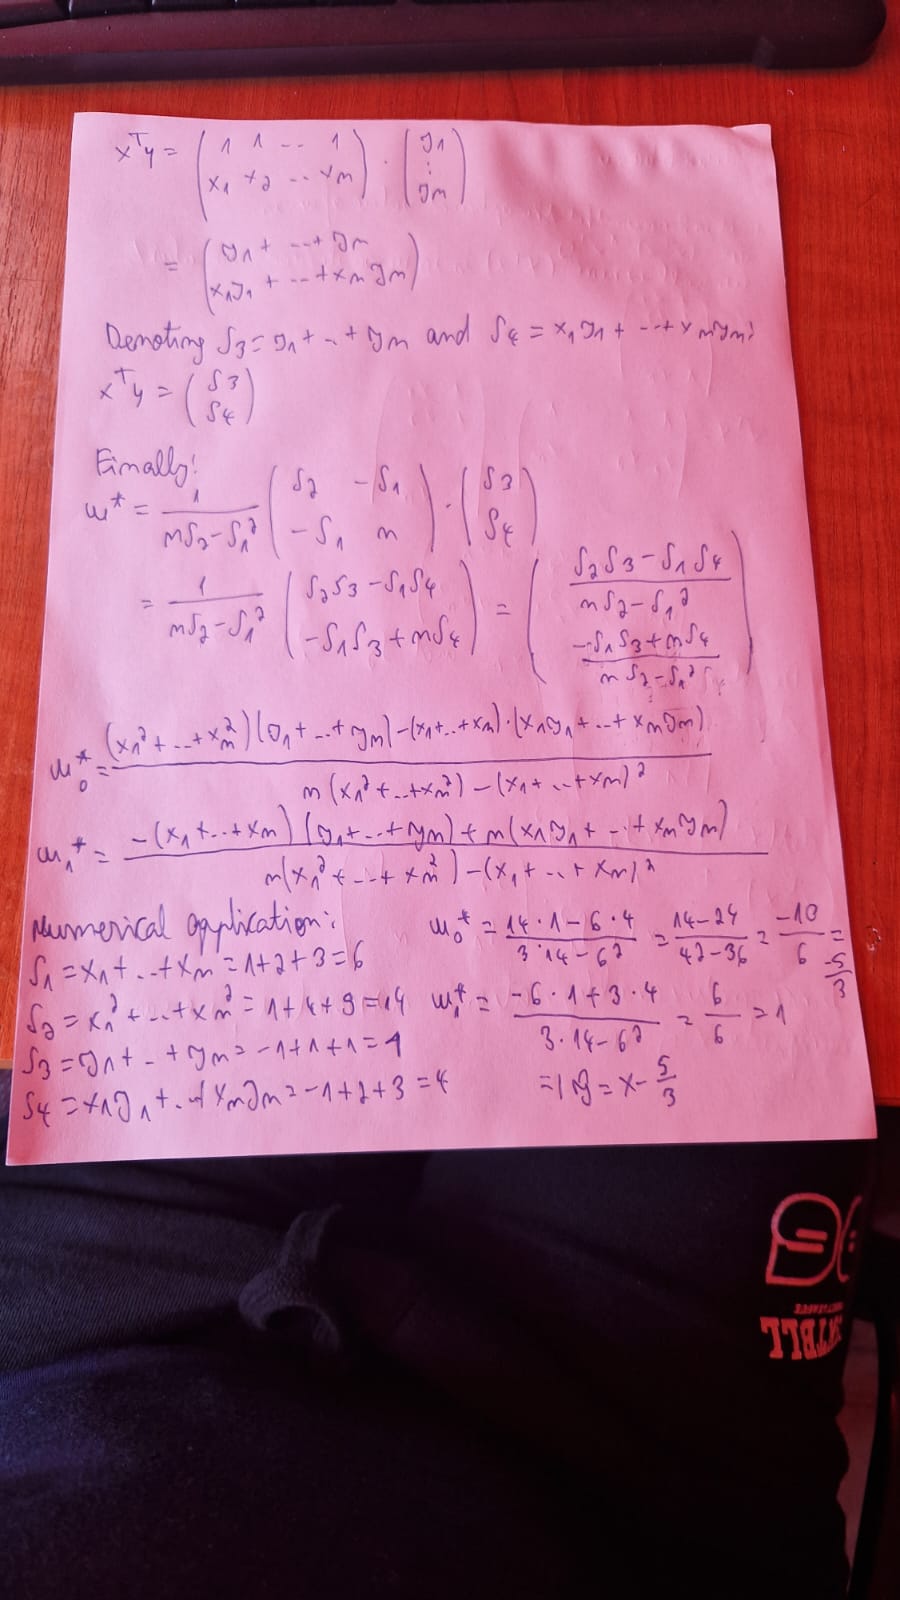 xᵀy = ( 1 1 ... 1 ) · ( y1 )
( x1 x2 ... xn ) ( ⋮ yn )
= ( y1 + ... + yn )
( x1y1 + ... + xnyn )
Denoting S3 = y1 + .. + yn and S4 = x1y1 + ... + xnyn:
xᵀy = ( S3 )
( S4 )
Finally:
w* = 1/(nS2 - S1²) ( S2 -S1 ) · ( S3 )
( -S1 n ) ( S4 )
= 1/(nS2 - S1²) ( S2S3 - S1S4 ) = ( (S2S3 - S1S4)/(nS2 - S1²) )
( -S1S3 + nS4 ) ( (-S1S3 + nS4)/(nS2 - S1²) )
w0* = ((x1² + ... + xn²)(y1 + ... + yn) - (x1 + .. + xn)·(x1y1 + ... + xnyn)) / (n(x1² + ... + xn²) - (x1 + ... + xn)²)
w1* = (-(x1 + ... + xn)(y1 + ... + yn) + n(x1y1 + ... + xnyn)) / (n(x1² + ... + xn²) - (x1 + ... + xn)²)
Numerical application:
S1 = x1 + ... + xn = 1+2+3 = 6
S2 = x1² + ... + xn² = 1+4+9 = 14
S3 = y1 + .. + yn = -1+1+1 = 1
S4 = x1y1 + .. + xnyn = -1+2+3 = 4
w0* = (14·1 - 6·4)/(3·14 - 6²) = (14-24)/(42-36) = -10/6 = -5/3
w1* = (-6·1 + 3·4)/(3·14 - 6²) = 6/6 = 1
=> y = x - 5/3